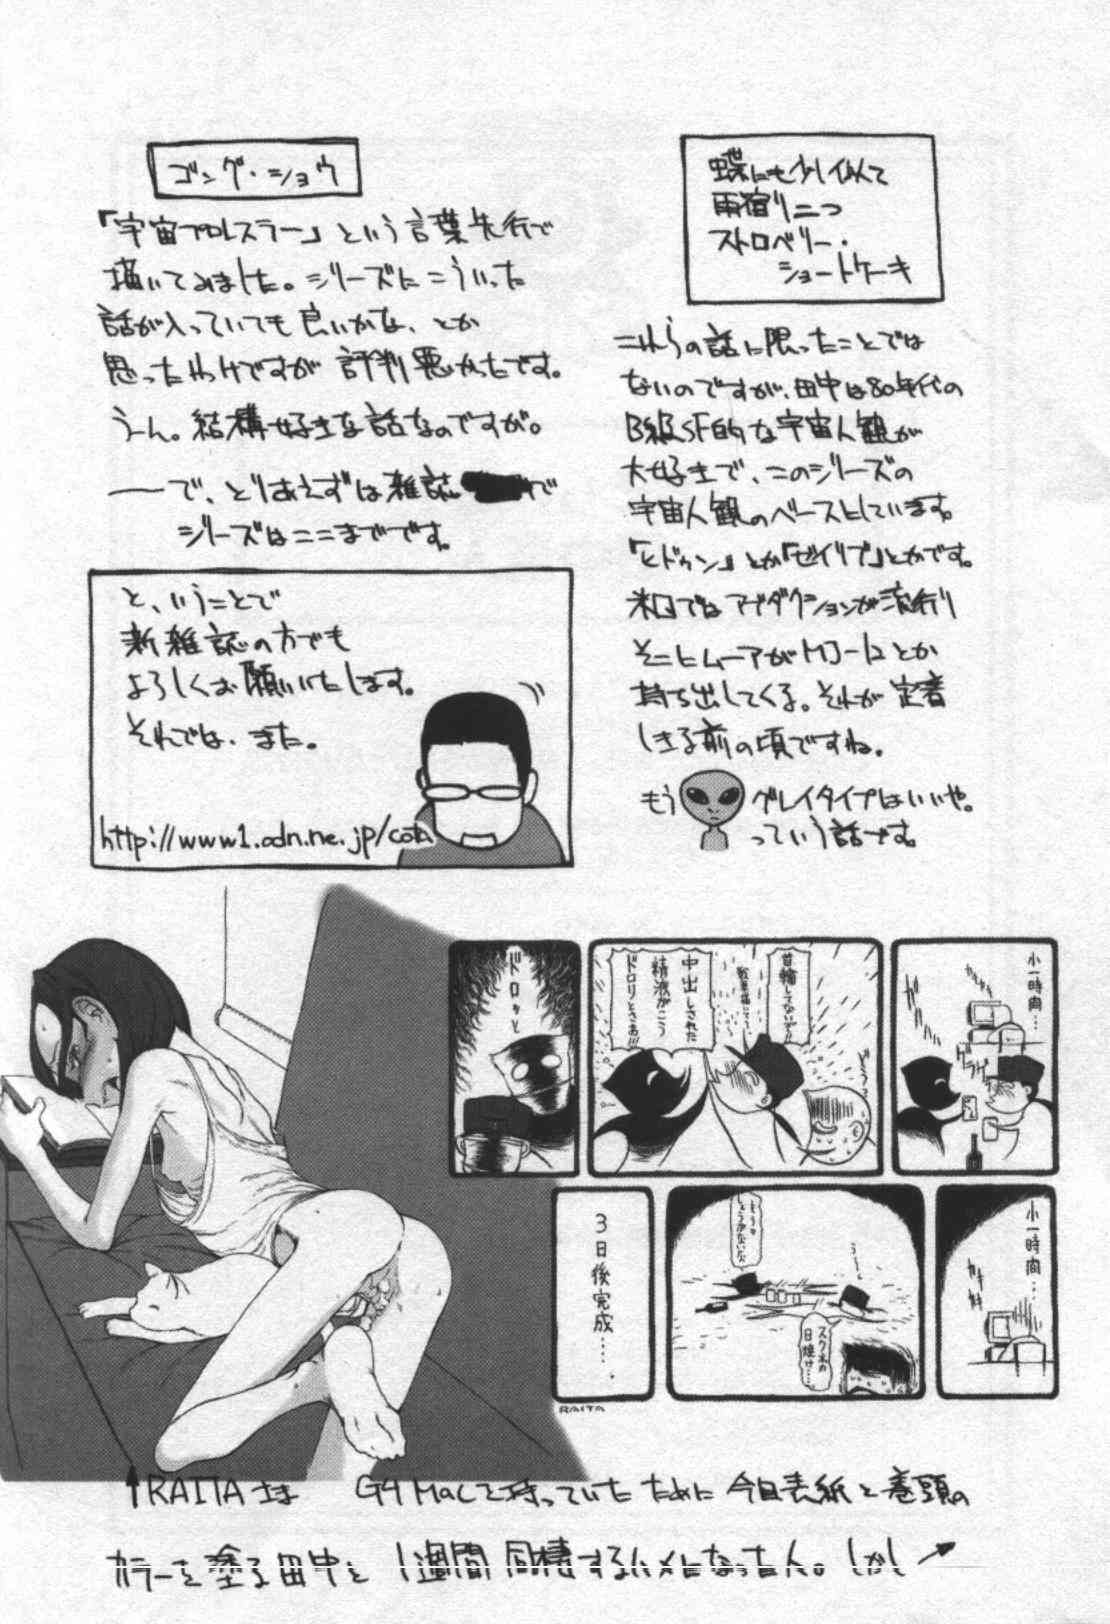 蝶にも少し似て
雨宿り二つ
ストロベリー・
ショートケーキ
これらの話に限ったことでは
ないのですが、田中は80年代の
B級SF的な宇宙人観が
大好きで、このシリーズの
宇宙人観のベースとしています。
「ヒドゥン」とか「ゼイリブ」とかです。
米国ではアブダクションが流行り
そこにムーアがMJ-12とか
持ち出してくる。それが定着
しきる前の頃ですね。
もう グレイタイプはいいや。
っていう話です。
ゴング・ショウ
「宇宙プロレスラー」という言葉先行で
描いてみました。シリーズにこういった
話が入っていても良いかな、とか
思ったわけですが評判悪かったです。
うーん。結構好きな話なのですが。
――で、とりあえずは雑誌 で
シリーズはここまでです。
と、いうことで
新雑誌の方でも
よろしくお願いいたします。
それでは、また。
http://www1.odn.ne.jp/cota
小一時間…
ゲラゲラ
首輪してないゾ!!
中出しされた
精液がこう
ドロリとさぁ!!!
ドロッと
小一時間…
カキ
カキ
スク水の
日焼け…
3日後完成……
RAITA
↑RAITAさま G4 Macを持っていたために今回表紙と巻頭の
カラーを塗る田中と1週間同棲するハメになった人。しかし↗